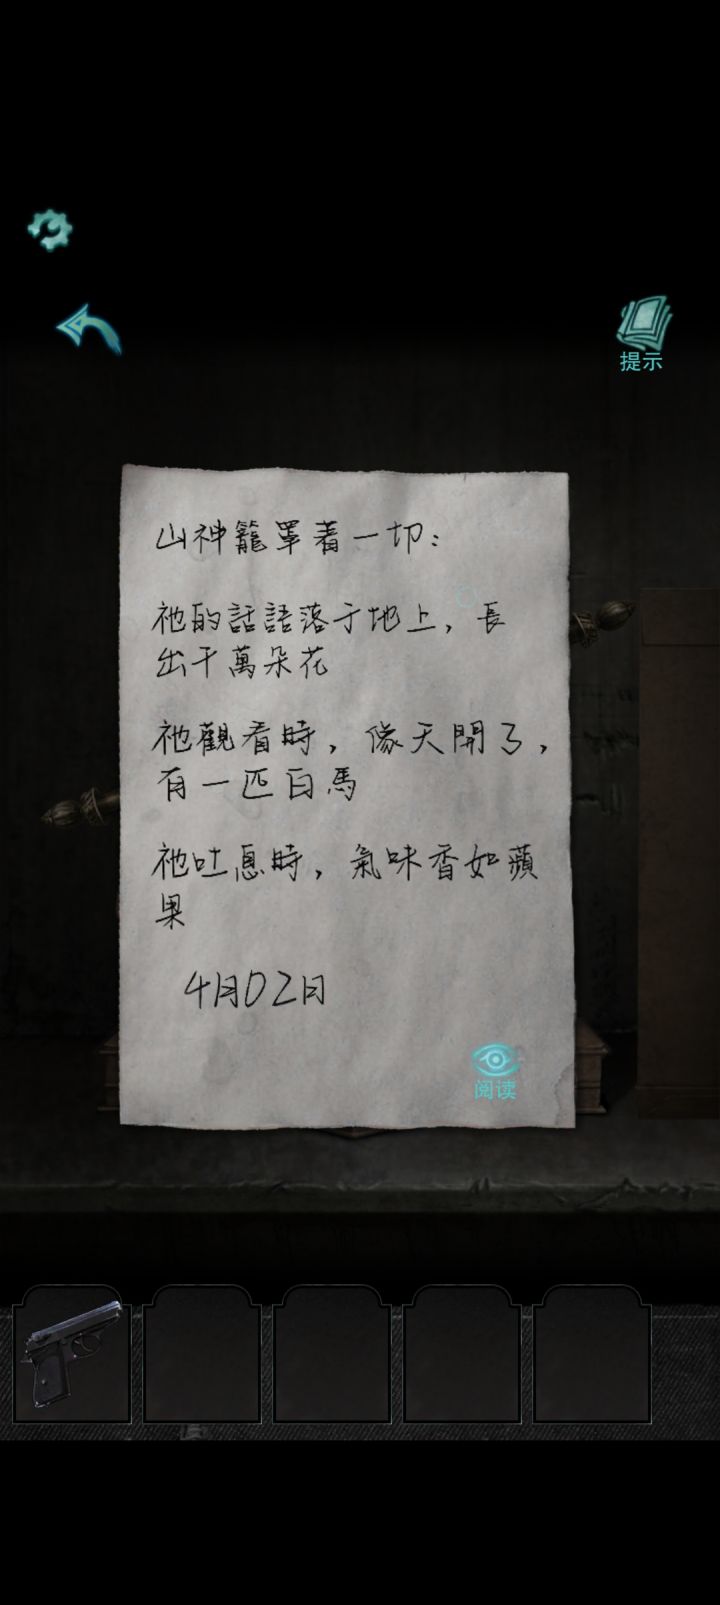 提示
山神籠罩着一切：
祂的話語落于地上，長
出千萬朵花
祂觀看時，像天開了，
有一匹白馬
祂吐息時，氣味香如蘋
果
4月02日
阅读